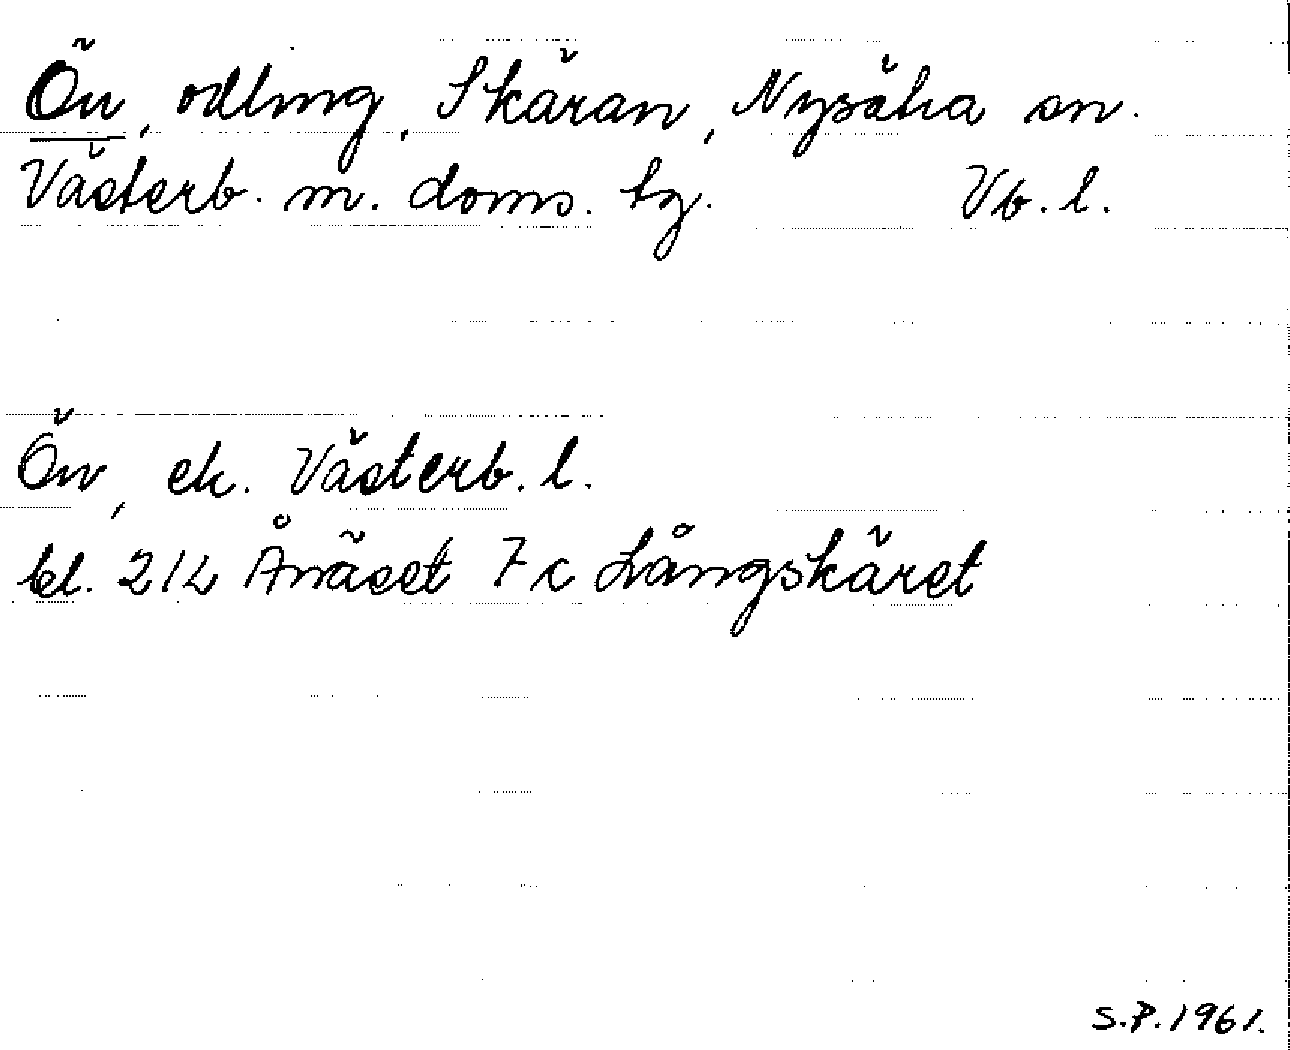 Ön, odling, Skäran, Nysätra sn.
Västerb. m. doms. tg. Vb. l.
Ön, ek. Västerb. l.
bl. 21L Ånäset 7c Långskäret
S.P. 1961.